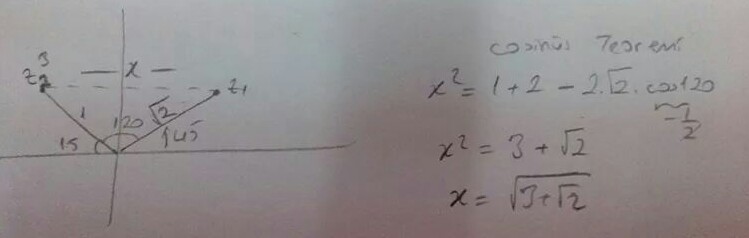 z₂³ — x — z₁
1 120 √2
15 45
cosinüs Teoremi
x² = 1 + 2 − 2.√2 . cos120
−1/2
x² = 3 + √2
x = √(3+√2)